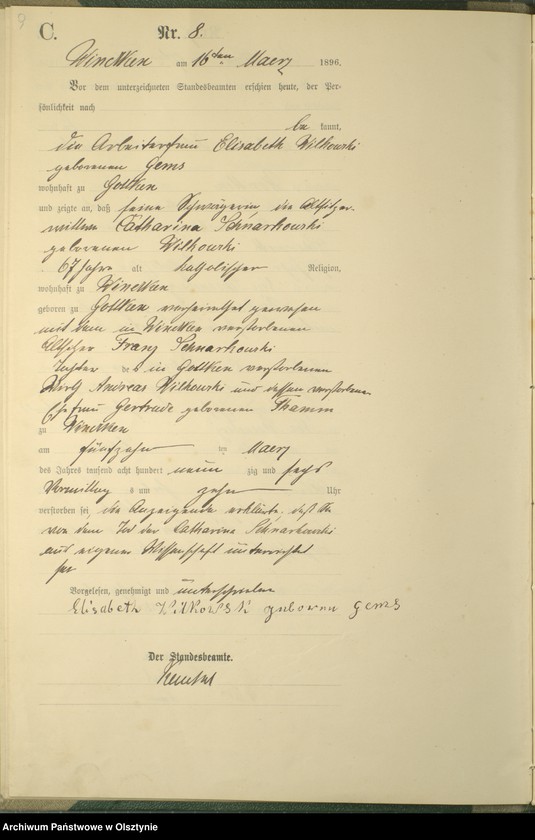 9
C.
Nr. 8.
Wincken am 16ten Maerz 1896.
Vor dem unterzeichneten Standesbeamten erschien heute, der Per-
sönlichkeit nach
be kannt,
die Arbeiterfrau Elisabeth Wilkowski
geborenen Gems
wohnhaft zu Gottken
und zeigte an, daß seine Schwägerin die Altsitzer-
wittwe Catharina Schnarkowski
geborenen Wilkowski
67 Jahre alt katholischer Religion,
wohnhaft zu Wincken
geboren zu Gottken verheirathet gewesen
mit dem in Wincken verstorbenen
Altsitzer Franz Schnarkowski
Tochter des in Gottken verstorbenen
Wirth Andreas Wilkowski und dessen verstorbene
Ehefrau Gertrude geborenen Thamm
zu Wincken
am fünfzehn ten Maerz
des Jahres tausend acht hundert neun zig und sechs
Vormittag s um zehn Uhr
verstorben sei, die Anzeigende erklärte, daß sie
von dem Tod der Catharina Schnarkowski
aus eigener Wissenschaft unterrichtet
sei
Vorgelesen, genehmigt und unterschrieben
Elisabeth Wilkowski geboren Gems
Der Standesbeamte.
Archiwum Państwowe w Olsztynie